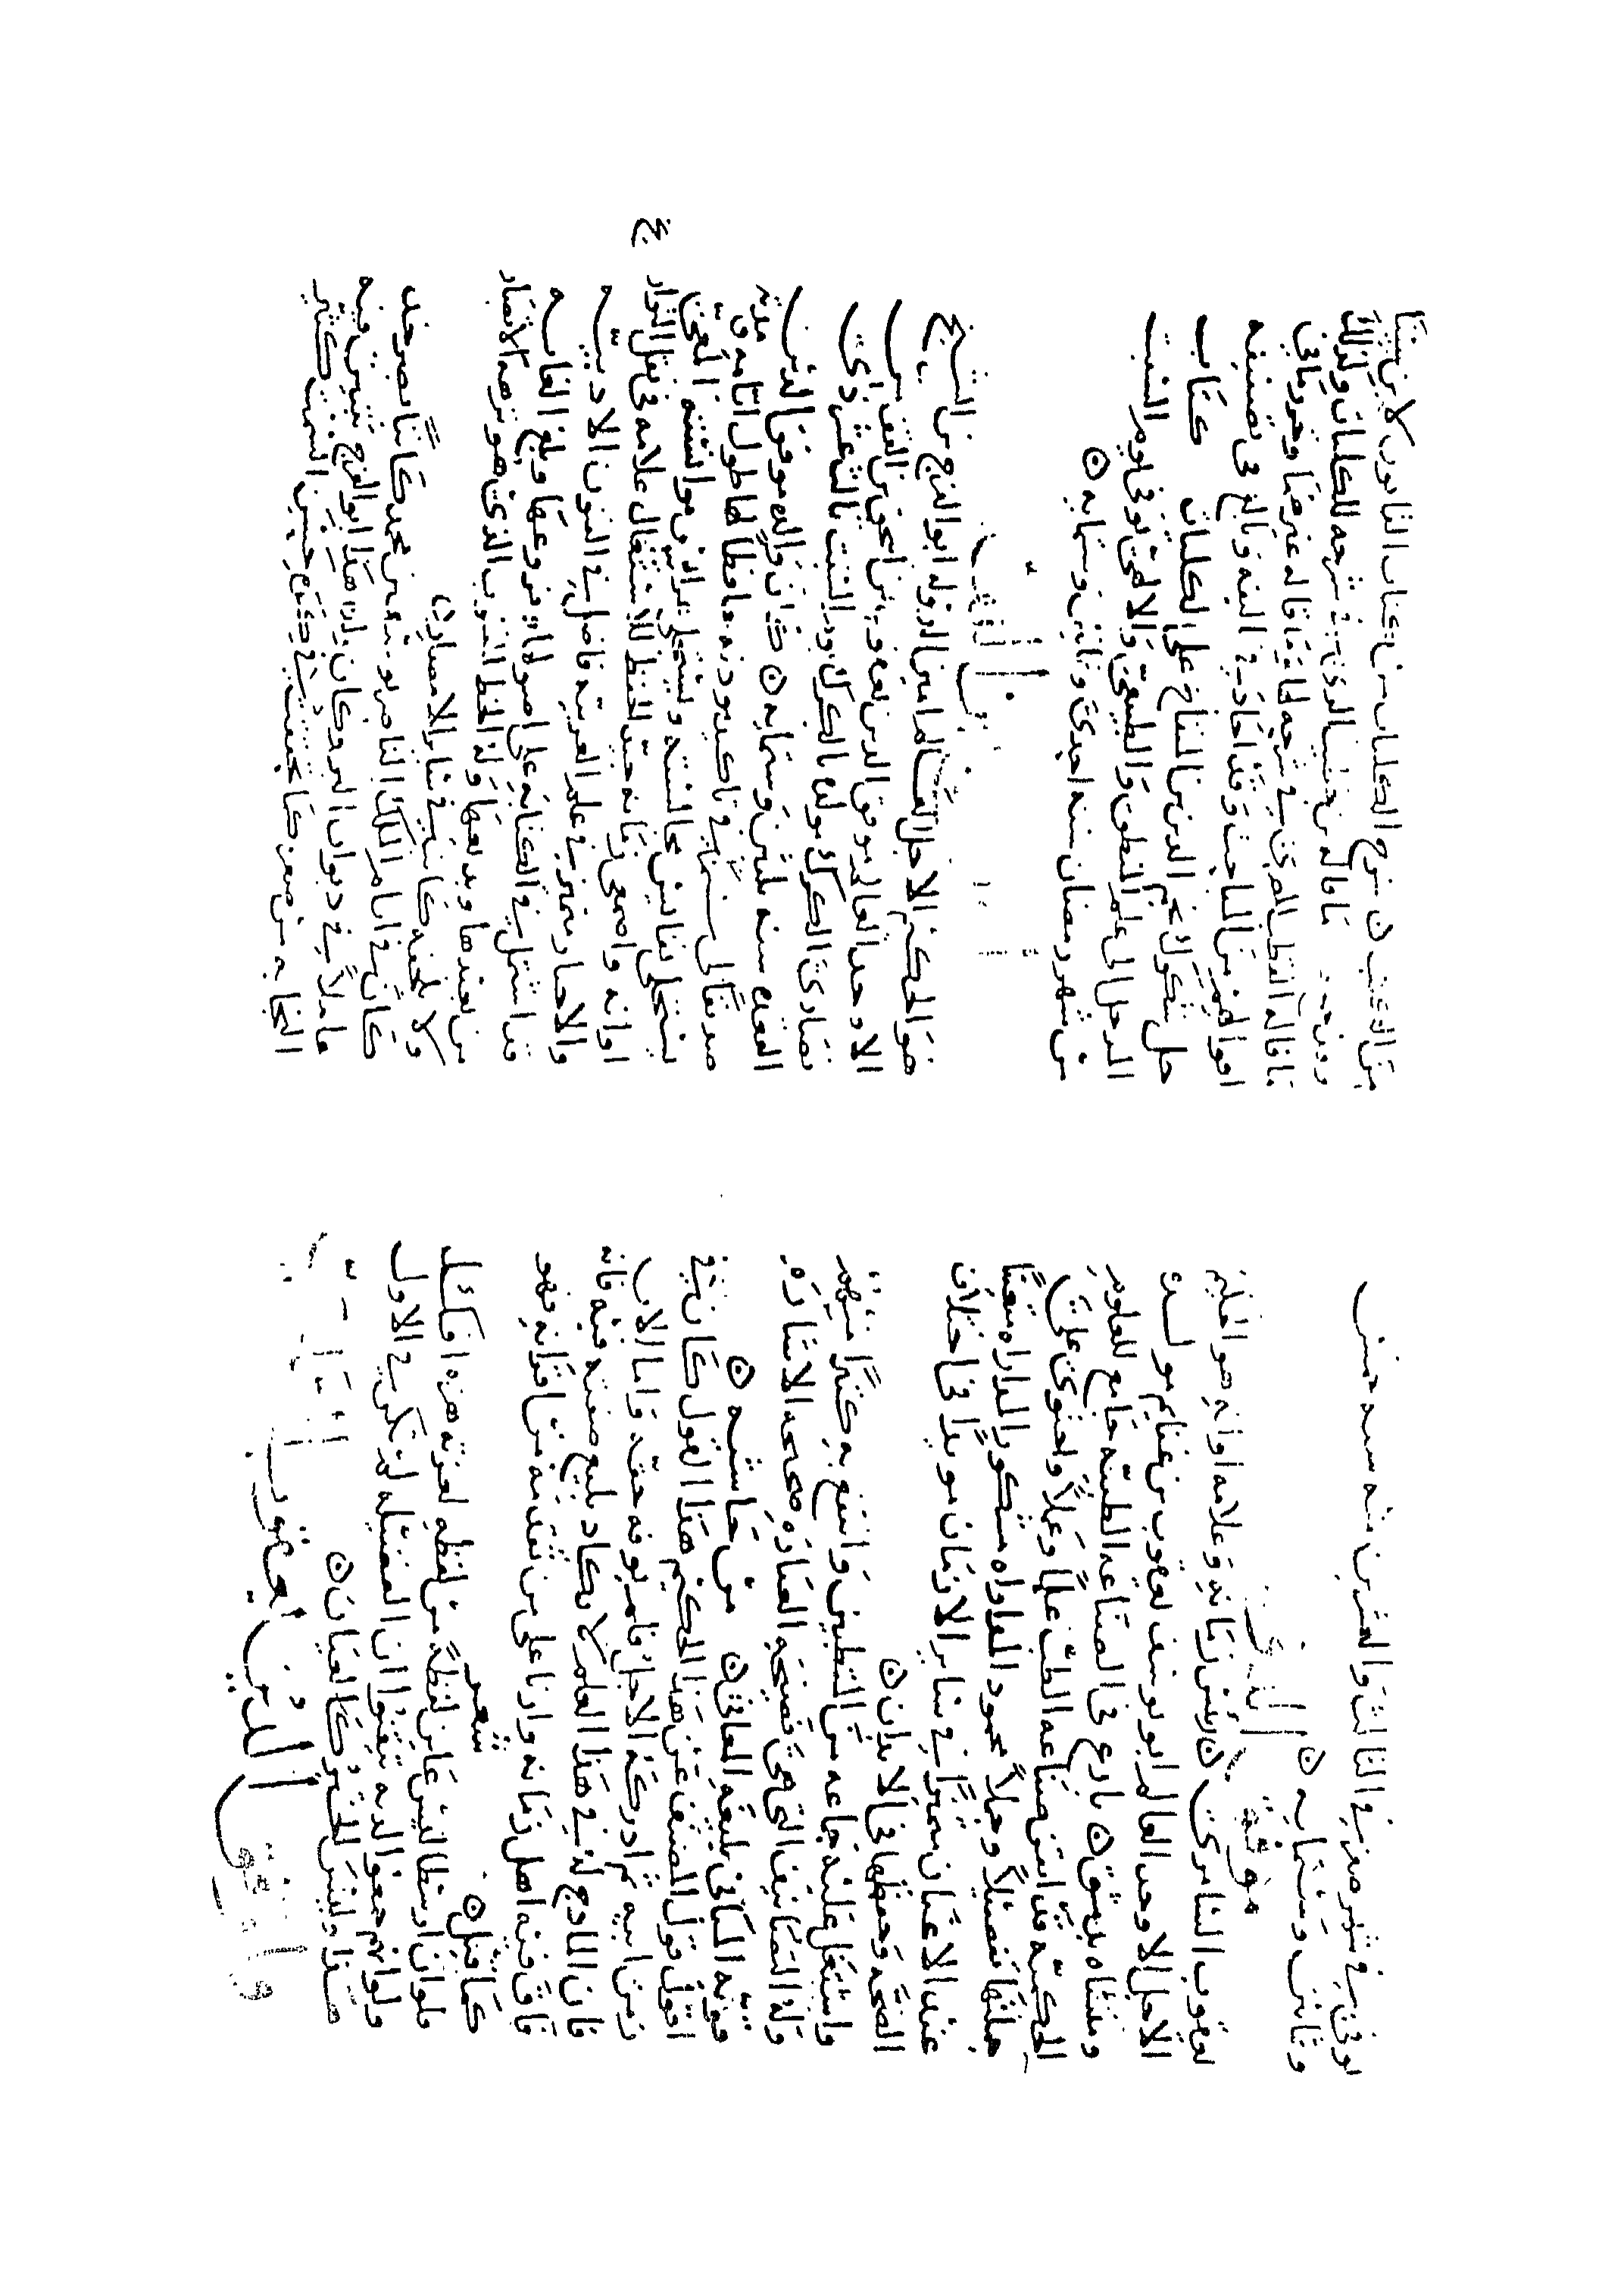 توفى في شهر صفر في الثالث والعشرين منه سنه خمس
وثمانين وستمايه
موفق الدين
يعقوب السامرى رئيس زمانه وعلامه اوانه هو الحكيم
الاجل الاوحد العالم ابو يوسف يعقوب بن غنايم مولده
ومنشاه بدمشق بارع فى الصناعه الطبيه جامع للعلوم
الحكميه قد اتقن صناعه الطب علما وعملا واحتوى على
جملتها تفصيلا وجملا محمود المداواه مشكور المداراه متعينا
عند الاعيان متميزا في ساير الازمان مويدا فى اختلاف
الصحه وحفظها فى الابدان
واشتغل عليه جماعه من المتطببين وانتفع به كثيرا منهم
وله التصانيف التى هى فصيحه العباره صحيحه الاشاره
قويه المبانى بليغه المعانى من حاشيه
اقول قول المصنف عن هذا الحكيم هذا القول كان في
زمن ابيه ثم ادركه الاجل فلم يوفه حقه واما الاب
فان المادح له في هذا العلم لا يكاد يبلغ صفته فيه فانه
فاق فيه اهل زمانه وارتا على من تقدمه من اقرانه فهو
كما قيل شعر
فلو ان ارسطاليس عاين لفظة من لفظه لعرته هزه افكل
ولو انهم جمعوا لديه تيقنوا ان الفضيله لم تكن في الاول
هذا وليس المخبر كالعيان
ولموفق الدين يعقوب السامرى من الكتب
من الكتب شرح الكليات من كتاب القانون لابن سينا
وقد جمع فيه ما قاله بن خطيب الرى في شرحه للكليات وكذلك
ما قاله القطب المصرى في شرحه لها وما قاله غيرهما وحرر ما فى
اقوالهم من المباحث وقد اجاد في الفه وبالغ فى تصنيفه
حل شكوك نجم الدين بن المنفاخ على الكليات كتاب
المدخل الى علم المنطق والطبيعى والالهى توفى يوم السبت
من شهر رمضان سنه احدى وثمانين وستمايه
ابو الفرج بن القف
هو الحكيم الاجل العالم امين الدوله ابو الفرج بن الشيخ
الاوحد العالم موفق الدين يعقوب بن اسحق بن القف من
نصارى الكرك مولده بالكرك يوم السبت ثالث عشر ذى
القعده سنه ثلثين وستمايه كان والده موفق الدين
صديقا لى مستمرا في تاكيد مودته حافظا لها طول ايامه ومدته
يستحلى نفايس مجالسته ويستجلى عرايس موانسته المعى
اوانه واصمعى زمانه جيد الحفظ للاشعار علامه فى نقل التواريخ
والاخبار متميز في علم العربيه فاضل في الفنون الادبيه
قد اشتمل في الكتابه على اصولها وفروعها وبلغ الغايه
من بعيدها وبديعها وله الخط المنسوب الذى هو نزهه الابصار
ولا يلحقه كاتب في ساير الامصار
كان في ايام الملك الناصر يوسف بن محمد كاتبا بصرخد
عاملا في ديوان البر وكان ولده هذا ابو الفرج تتبين فيه
النجابه من صغره كما تحققت في كبره حسن السمت كثير